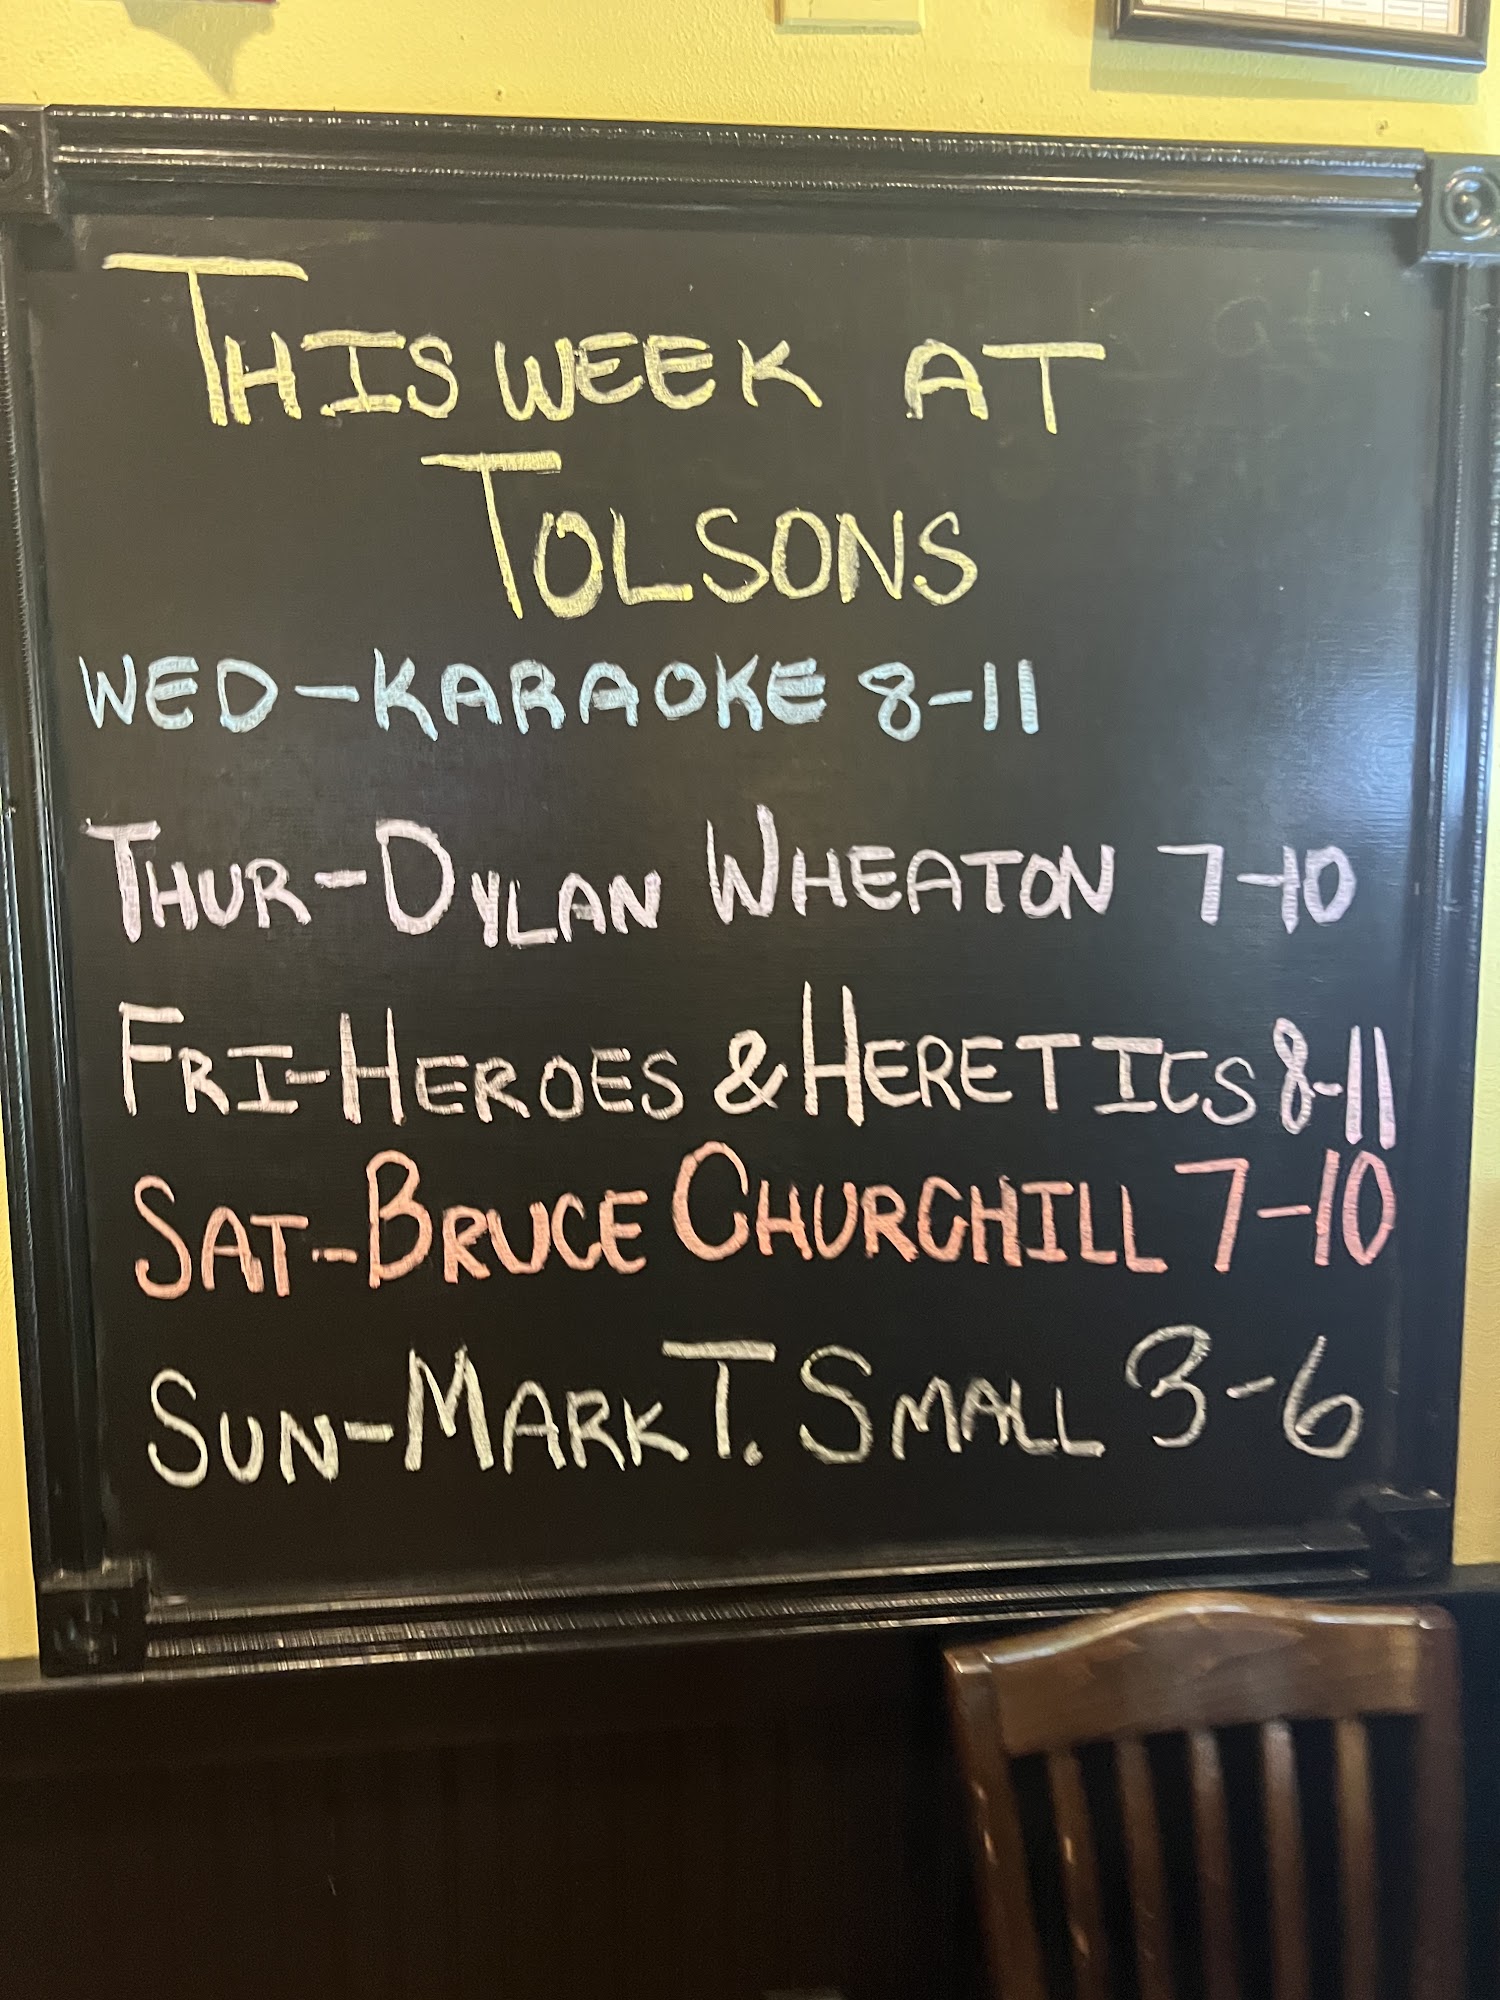 THIS WEEK AT
TOLSONS
WED-KARAOKE 8-11
THUR-DYLAN WHEATON 7-10
FRI-HEROES & HERETICS 8-11
SAT-BRUCE CHURCHILL 7-10
SUN-MARK T. SMALL 3-6